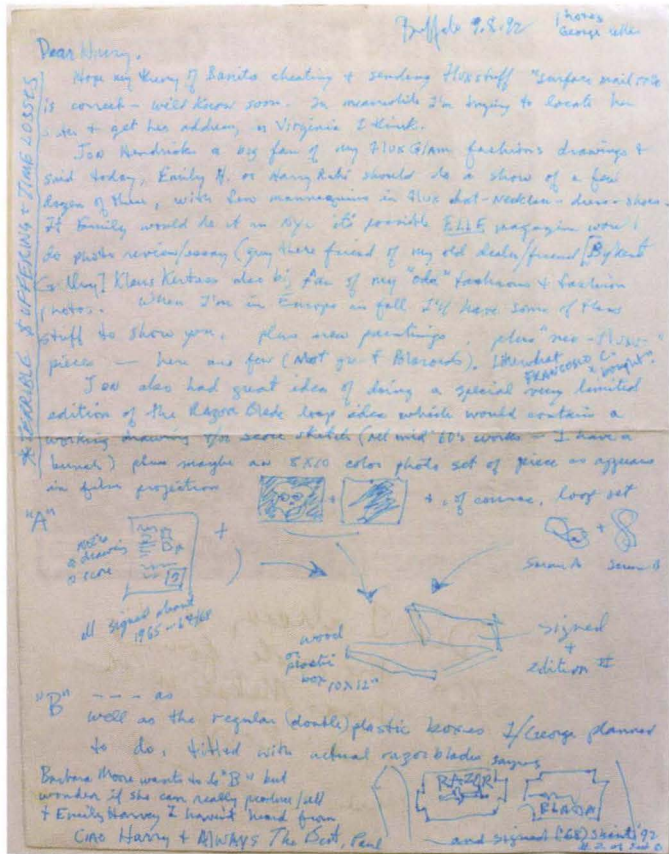 Buffalo 9.8.92
Dear Harry,
Hope my theory of Banita cheating & sending flux stuff "surface mail
is correct — will know soon. In meanwhile I'm trying to locate her
& get her address, in Virginia I think.
Jon Hendricks a big fan of my Flux Glam fashions drawings &
said today, Emily H. or Harry Ruhé should do a show of a few
dozen of them, with few mannequins in flux hat-necklace-dress-shoes.
If Emily would do it in NYC it's possible ELLE magazine would
do photo review/essay (guy there friend of my old dealer/friend [Bykert
Gallery] Klaus Kertess also big fan of my "odd" fashions & fashion
photos. When I'm in Europe in fall I'll have some of this
stuff to show you, plus new paintings, plus "neo-Fluxus"
pieces — here are few (not great Polaroids).
FRANCESCO C. "bought".
Jon also had great idea of doing a special very limited
edition of the Razor Blade loop idea which would contain a
working drawing &/or score sketch (all mid 60's works — I have a
bunch) plus maybe an 8x10 color photo set of piece as appears
in film projection
+ , of course, loop set
* TERRIBLE SUFFERING & TIME LOSSES
"A"
drawing
score
+
all signed about
1965-67/68
screen A + screen B
wood
or
plastic
box 10x12"
signed
+
edition #
"B" --- as
well as the regular (double) plastic boxes I/George planned
to do, titled with actual razor blades saying
Barbara Moore wants to do "B" but
wonder if she can really produce/sell
& Emily Harvey I haven't heard from
RAZOR
BLADE
Ciao Harry & ALWAYS The Best, Paul
and signed ('68) Sharits '92